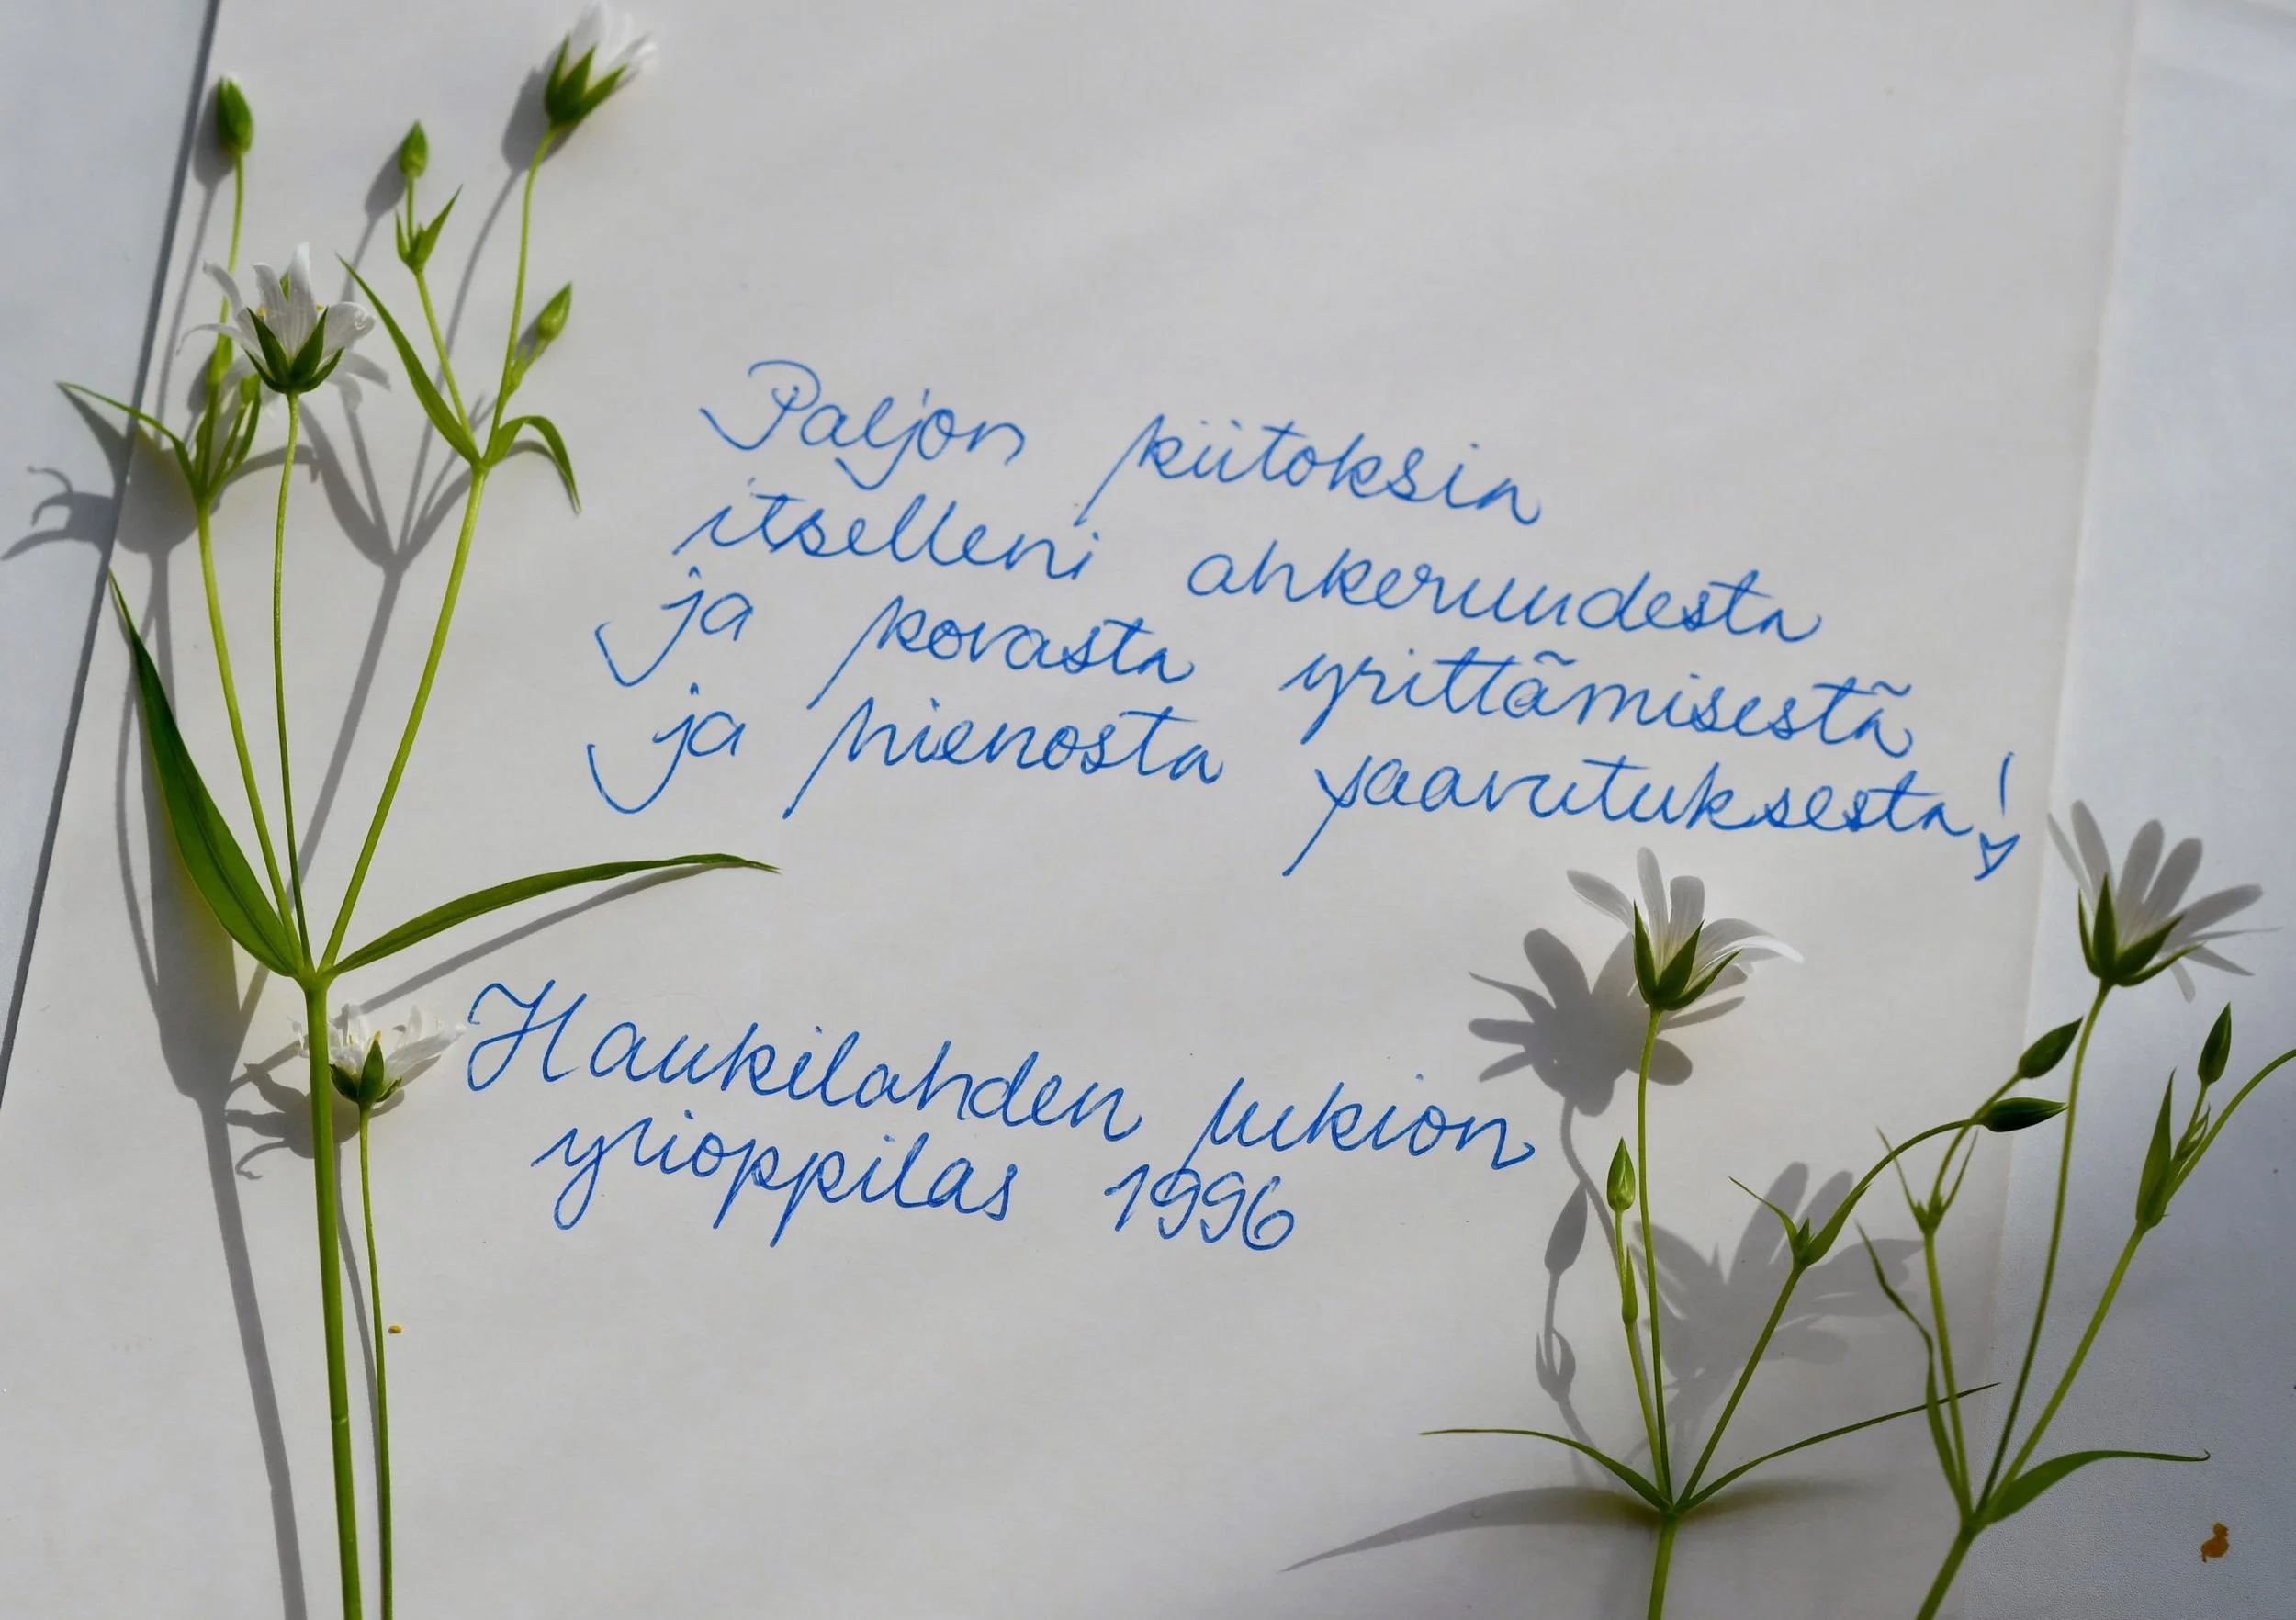 Paljon kiitoksia
itselleni ahkeruudesta
ja kovasta yrittämisestä
ja hienosta saavutuksesta!
Haukilahden lukion
ylioppilas 1996